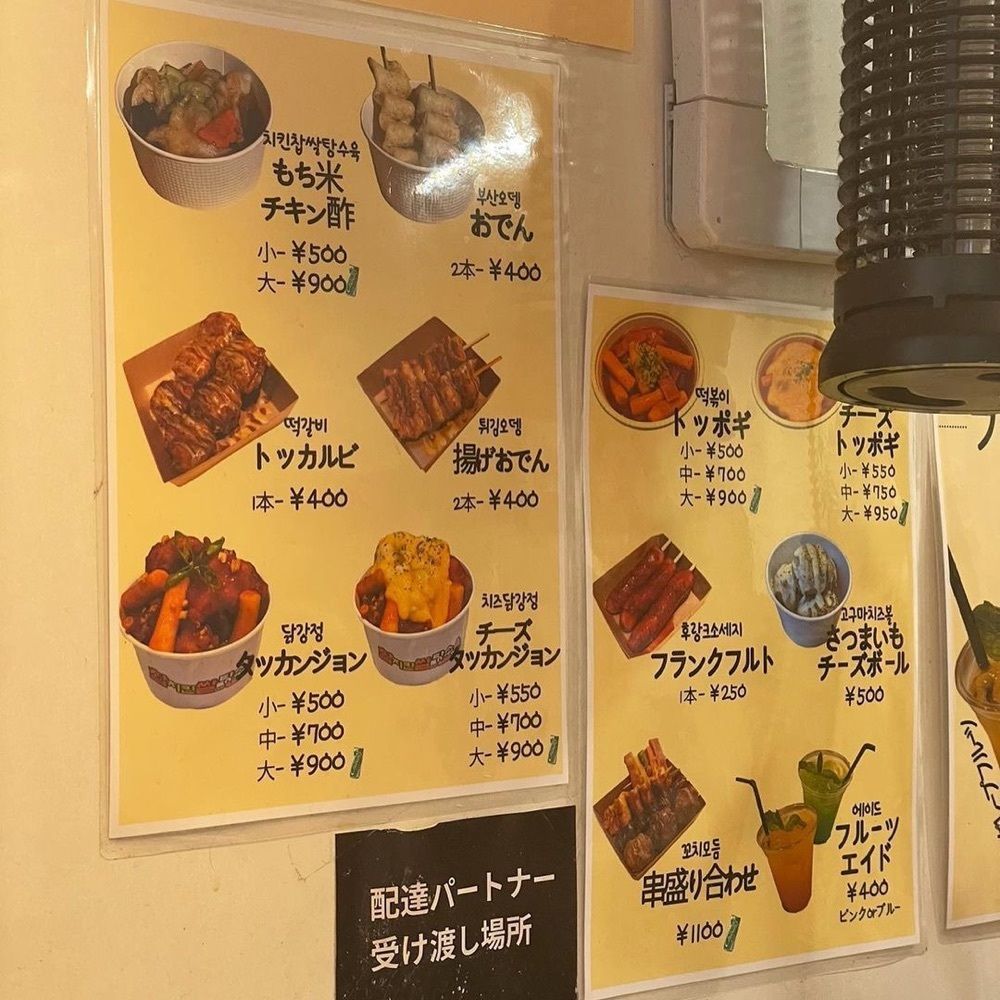 치킨찹쌀탕수육
もち米
チキン酢
小-¥500
大-¥900
부산오뎅
おでん
2本-¥400
떡갈비
トッカルビ
1本-¥400
튀김오뎅
揚げおでん
2本-¥400
닭강정
タッカンジョン
小-¥500
中-¥700
大-¥900
치즈닭강정
チーズ
タッカンジョン
小-¥550
中-¥700
大-¥900
떡볶이
トッポギ
小-¥500
中-¥700
大-¥900
チーズ
トッポギ
小-¥550
中-¥750
大-¥950
후랑크소세지
フランクフルト
1本-¥250
고구마치즈볼
さつまいも
チーズボール
¥500
꼬치모듬
串盛り合わせ
¥1100
에이드
フルーツ
エイド
¥400
ピンクorブルー
配達パートナー
受け渡し場所